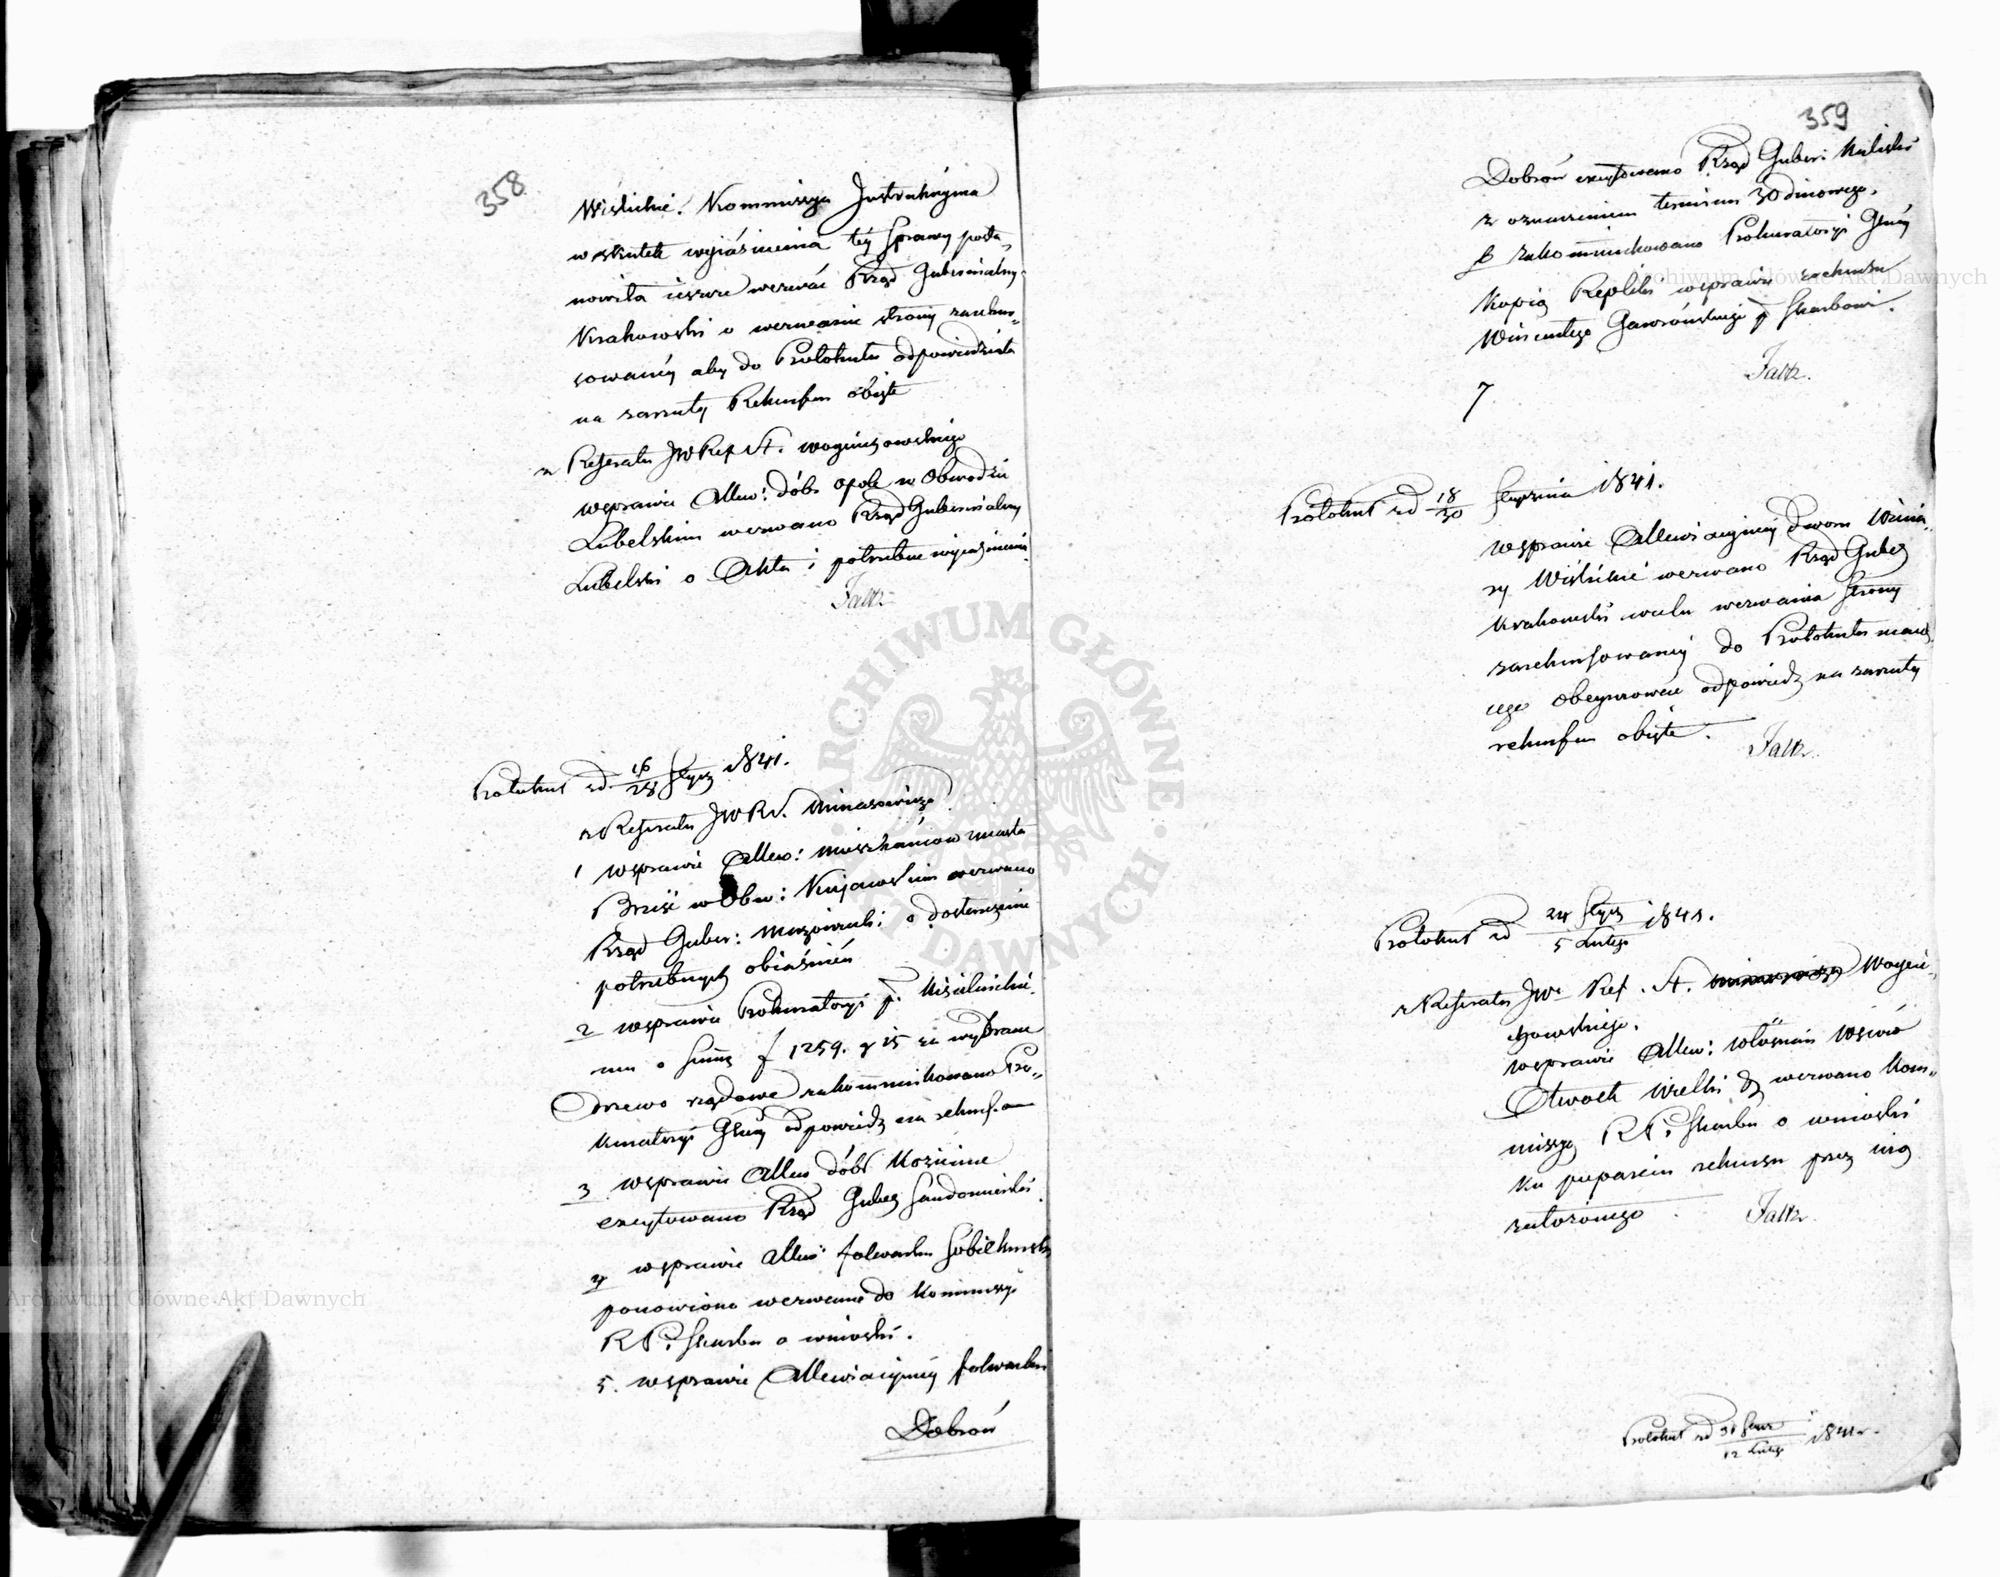 358
Wiślicki. Kommissya Instrukcyjna
w skutek wyjaśnienia téj sprawy posta„
nowiła jeszcze wezwać Rząd Gubernialny
Krakowski o wezwanie strony zarekur„
sowanéj aby do Protokułu odpowiedziała
na zarzuty Rekursem objęte
z Referatu JW Ref St.
wsprawie Allew: dóbr Opole w Obwodzie
Lubelskim wezwano Rząd Gubernialny
Lubelski o Akta i potrzebne wyjaśnienia
Faltz
Protokuł z d 16/28 Stycz 1841.
z Referatu JW R S. Minasowicza
1 wsprawie Allew: mieszkańców miasta
Brześć w Obw: Kujawskim wezwano
Rząd Guber: Mazowiecki o dostarczenie
potrzebnych objaśnień
2 wsprawie Prokuratoryi p.
o summę f 1259. g 15 za wybrane
Drzewo rządowe zakommunikowano Pro„
kuratoryi Głnéj odpowiedź na rekurs
3 wsprawie Allew dóbr Kozienice
excytowano Rząd Guber Sandomierski.
4 wsprawie Allew folwarku
ponowiono wezwanie do Kommissyi
R P i Skarbu o wnioski.
5. wsprawie Allewiacyjnéj folwarku
Dobroń
359
Dobroń excytowano Rząd Guber: Kaliski
z oznaczeniem terminu 30 dniowego.
6 zakommunikowano Prokuratoryi Głnéj
Kopią Repliki wsprawie rekursu
Wincentego Gawrońskiego p Skarbowi.
Faltz.
7
Protokuł z d 18/30 Stycznia 1841.
wsprawie Allewiacyjnéj dwom
Wiślickié wezwano Rząd Guber
Krakowski wcelu wezwania strony
zarekursowanéj do Protokułu mają„
cego obejmować odpowiedź na zarzuty
rekursem objęte.
Faltz.
Protokuł z d 24 Stycz/5 Lutego 1841.
z Referatu JW Ref. St.
wsprawie Allew: włościan wsiów
Otwock Wielki wezwano Kom„
missyą R P i Skarbu o wnioski
ku poparciu rekursu przez nią
założonego.
Faltz.
Protokuł z d 31 Stycz/12 Lutego 1841 r.
Archiwum Główne Akt Dawnych
Archiwum Główne Akt Dawnych
ARCHIWUM GŁÓWNE AKT DAWNYCH